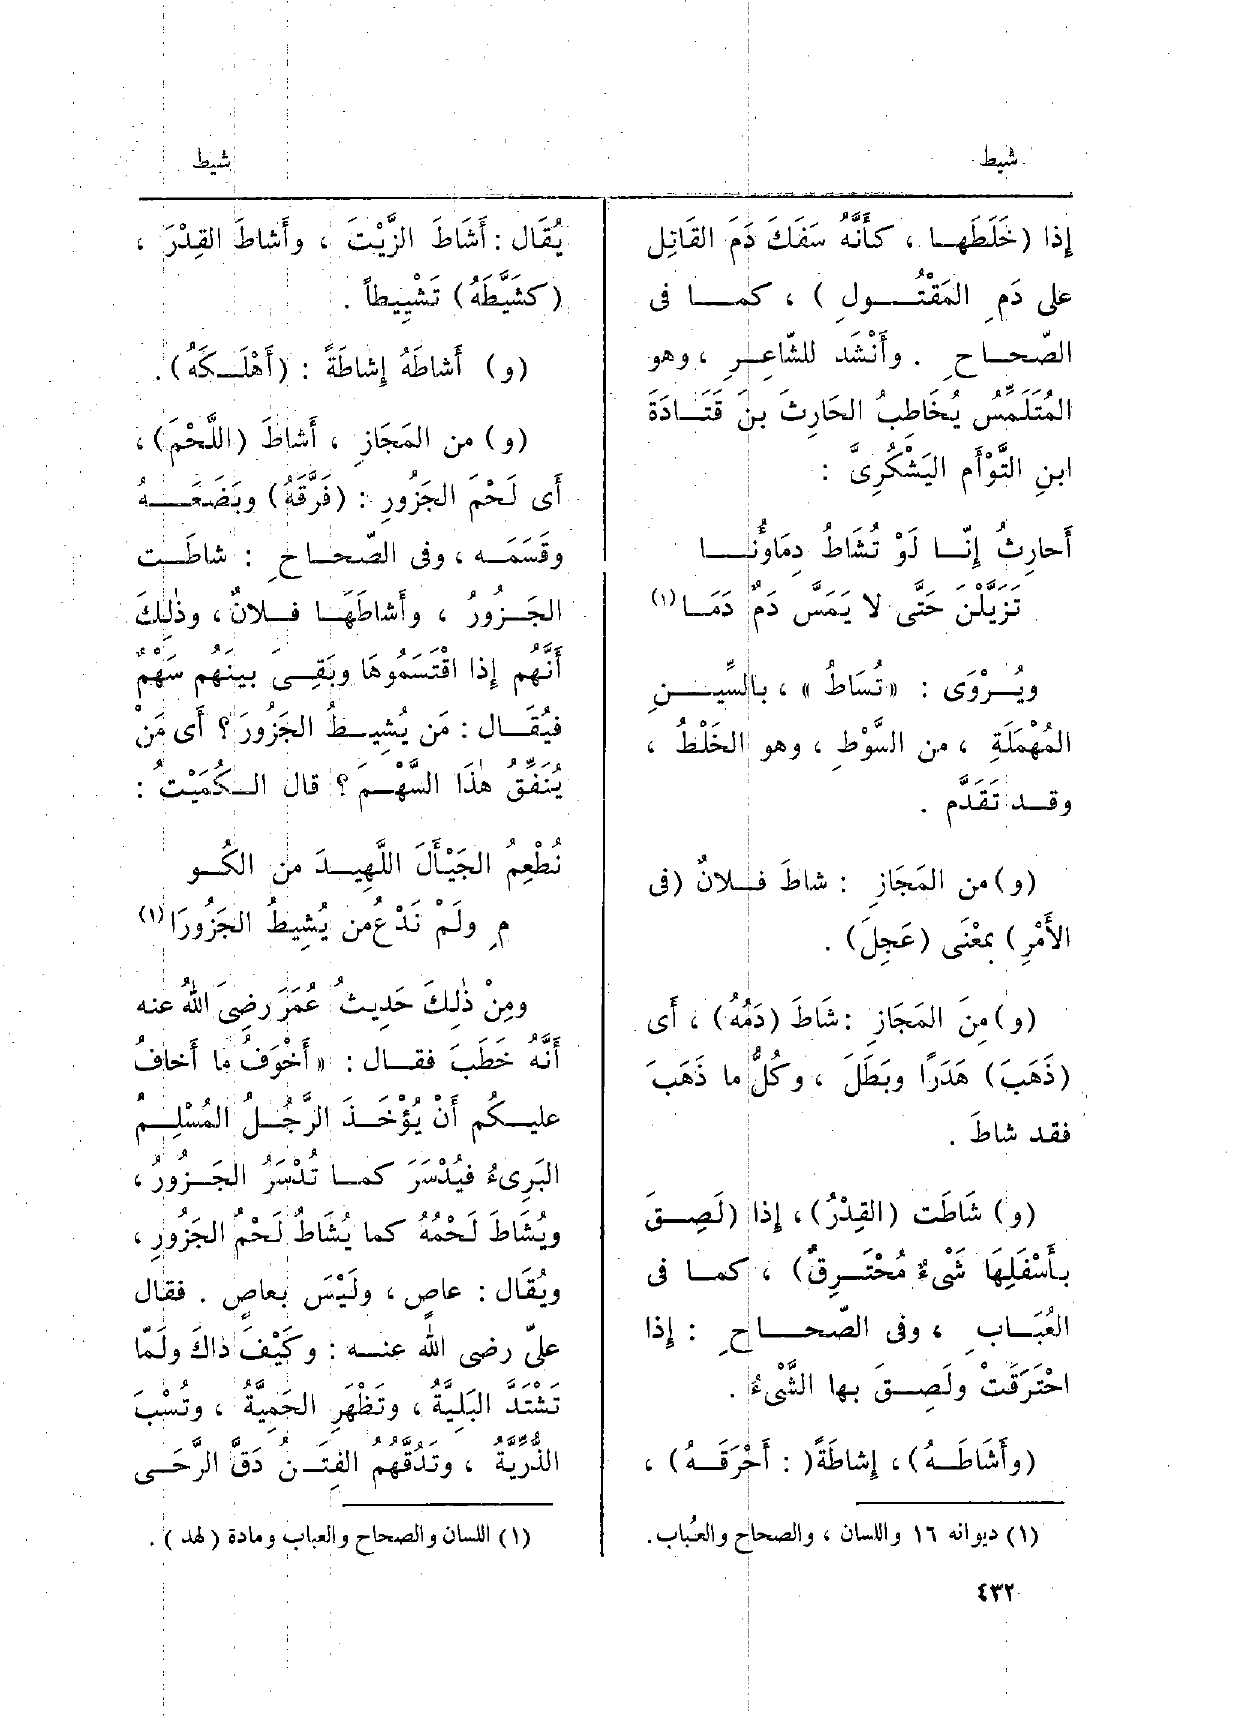 شيط
شيط
إذا (خَلَطَهـا ، كأَنَّهُ سَفَكَ دَمَ القَاتِل
على دَمِ المَقْتُـولِ ) ، كمـا فى
الصّحـاحِ . وأَنْشَد للشّاعِـرِ ، وهو
المُتَلَمِّس يُخَاطِبُ الحَارِثَ بنَ قَتَـادَةَ
ابنِ التَّوْأَم اليَشْكُرِىَّ :
أَحارِثُ إِنَّـا لَوْ تُشَاطُ دِمَاؤُنَـا
تَزَيلَّنَ حَتَّى لا يَمَسَّ دَمٌ دَمَـا (١)
ويُـرْوَى : «تُسَاطُ» ، بالسِّيـنِ
المُهْمَلَةِ ، من السَّوْطِ ، وهو الخَلْطُ ،
وقـد تَقَدَّم .
(و) من المَجَازِ : شاطَ فـلانٌ (فى
الأَمْرِ) بمَعْنَى (عَجِلَ) .
(و) مِنَ المَجَازِ : شَاطَ (دَمُهُ) ، أَى
(ذَهَبَ) هَدَرًا وبَطَلَ ، وكُلُّ ما ذَهَبَ
فقد شاطَ .
(و) شَاطَت (القِدْرُ) ، إذا (لَصِـقَ
بـأَسْفَلِهَا شَىْءٌ مُحْتَـرِقٌ) ، كمـا فى
العُبَـابِ ، وفى الصّحـاحِ : إذا
احْتَرَقَتْ ولَصِـقَ بها الشَّىْءُ .
(وأَشَاطَـهُ) ، إِشَاطَةً( : أَحْرَقَـهُ) ،
(١) ديوانه ١٦ واللسان ، والصحاح والعُباب.
٤٣٢
يُقَال : أَشَاطَ الزَّيْتَ ، وأَشاطَ القِدْرَ ،
(كشَيَّطَهُ) تَشْيِيطاً .
(و) أَشاطَهُ إِشاطَةً : (أَهْلَـكَهُ).
(و) من المَجَازِ ، أَشاطَ (اللَّحْمَ) ،
أَى لَحْمَ الجَزُورِ : (فَرَّقَهُ) وبَضَعَـهُ
وقَسَمَـه ، وفى الصّحـاحِ : شاطَـت
الجَـزُورُ ، وأَشاطَهَـا فـلانٌ ، وذٰلِكَ
أَنَّهُم إِذا اقْتَسَمُوهَا وبَقِـىَ بينهم سَهْمٌ
فيُقَـال : مَن يُشِيـطُ الجَزُورَ ؟ أَى مَنْ
يُنَفِّقُ هٰذَا السَّهْـمَ ؟ قال الـكُمَيْتُ :
نُطْعِمُ الجَيْأَلَ اللَّهِيـدَ من الكُـو
مِ ولَمْ نَدْعُ من يُشِيطُ الجَزُورَا (١)
ومِنْ ذٰلِكَ حَدِيثُ عُمَرَ رضِىَ اللهُ عنه
أَنَّهُ خَطَبَ فقـال : «أَخْوَفُ ما أَخافُ
عليـكم أَنْ يُؤْخَـذَ الرَّجُـلُ المُسْلِـمُ
البَرِىءُ فيُدْسَرَ كمـا تُدْسَرُ الجَـزُورُ ،
ويُشَاطَ لَحْمُهُ كما يُشَاطُ لَحْمُ الجَزُورِ ،
ويُقَال : عاصٍ ، ولَيْسَ بعاصٍ . فقال
علىّ رضى الله عنـه : وكَيْفَ ذاكَ ولَمّا
تَشْتَدَّ البَلِيَّةُ ، وتَظْهَرِ الحَمِيَّةُ ، وتُسْبَ
الذُّرِّيَّةُ ، وتَدُقَّهُم الفِتَـنُ دَقَّ الرَّحَـى
(١) اللسان والصحاح والعباب ومادة ( لهد ) .